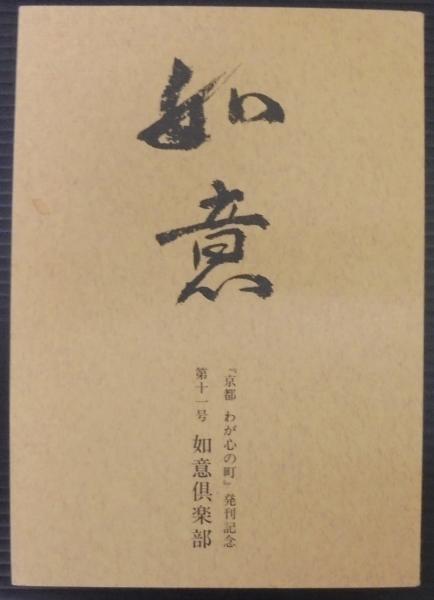 如意
『京都 わが心の町』発刊記念
第十一号 如意倶楽部